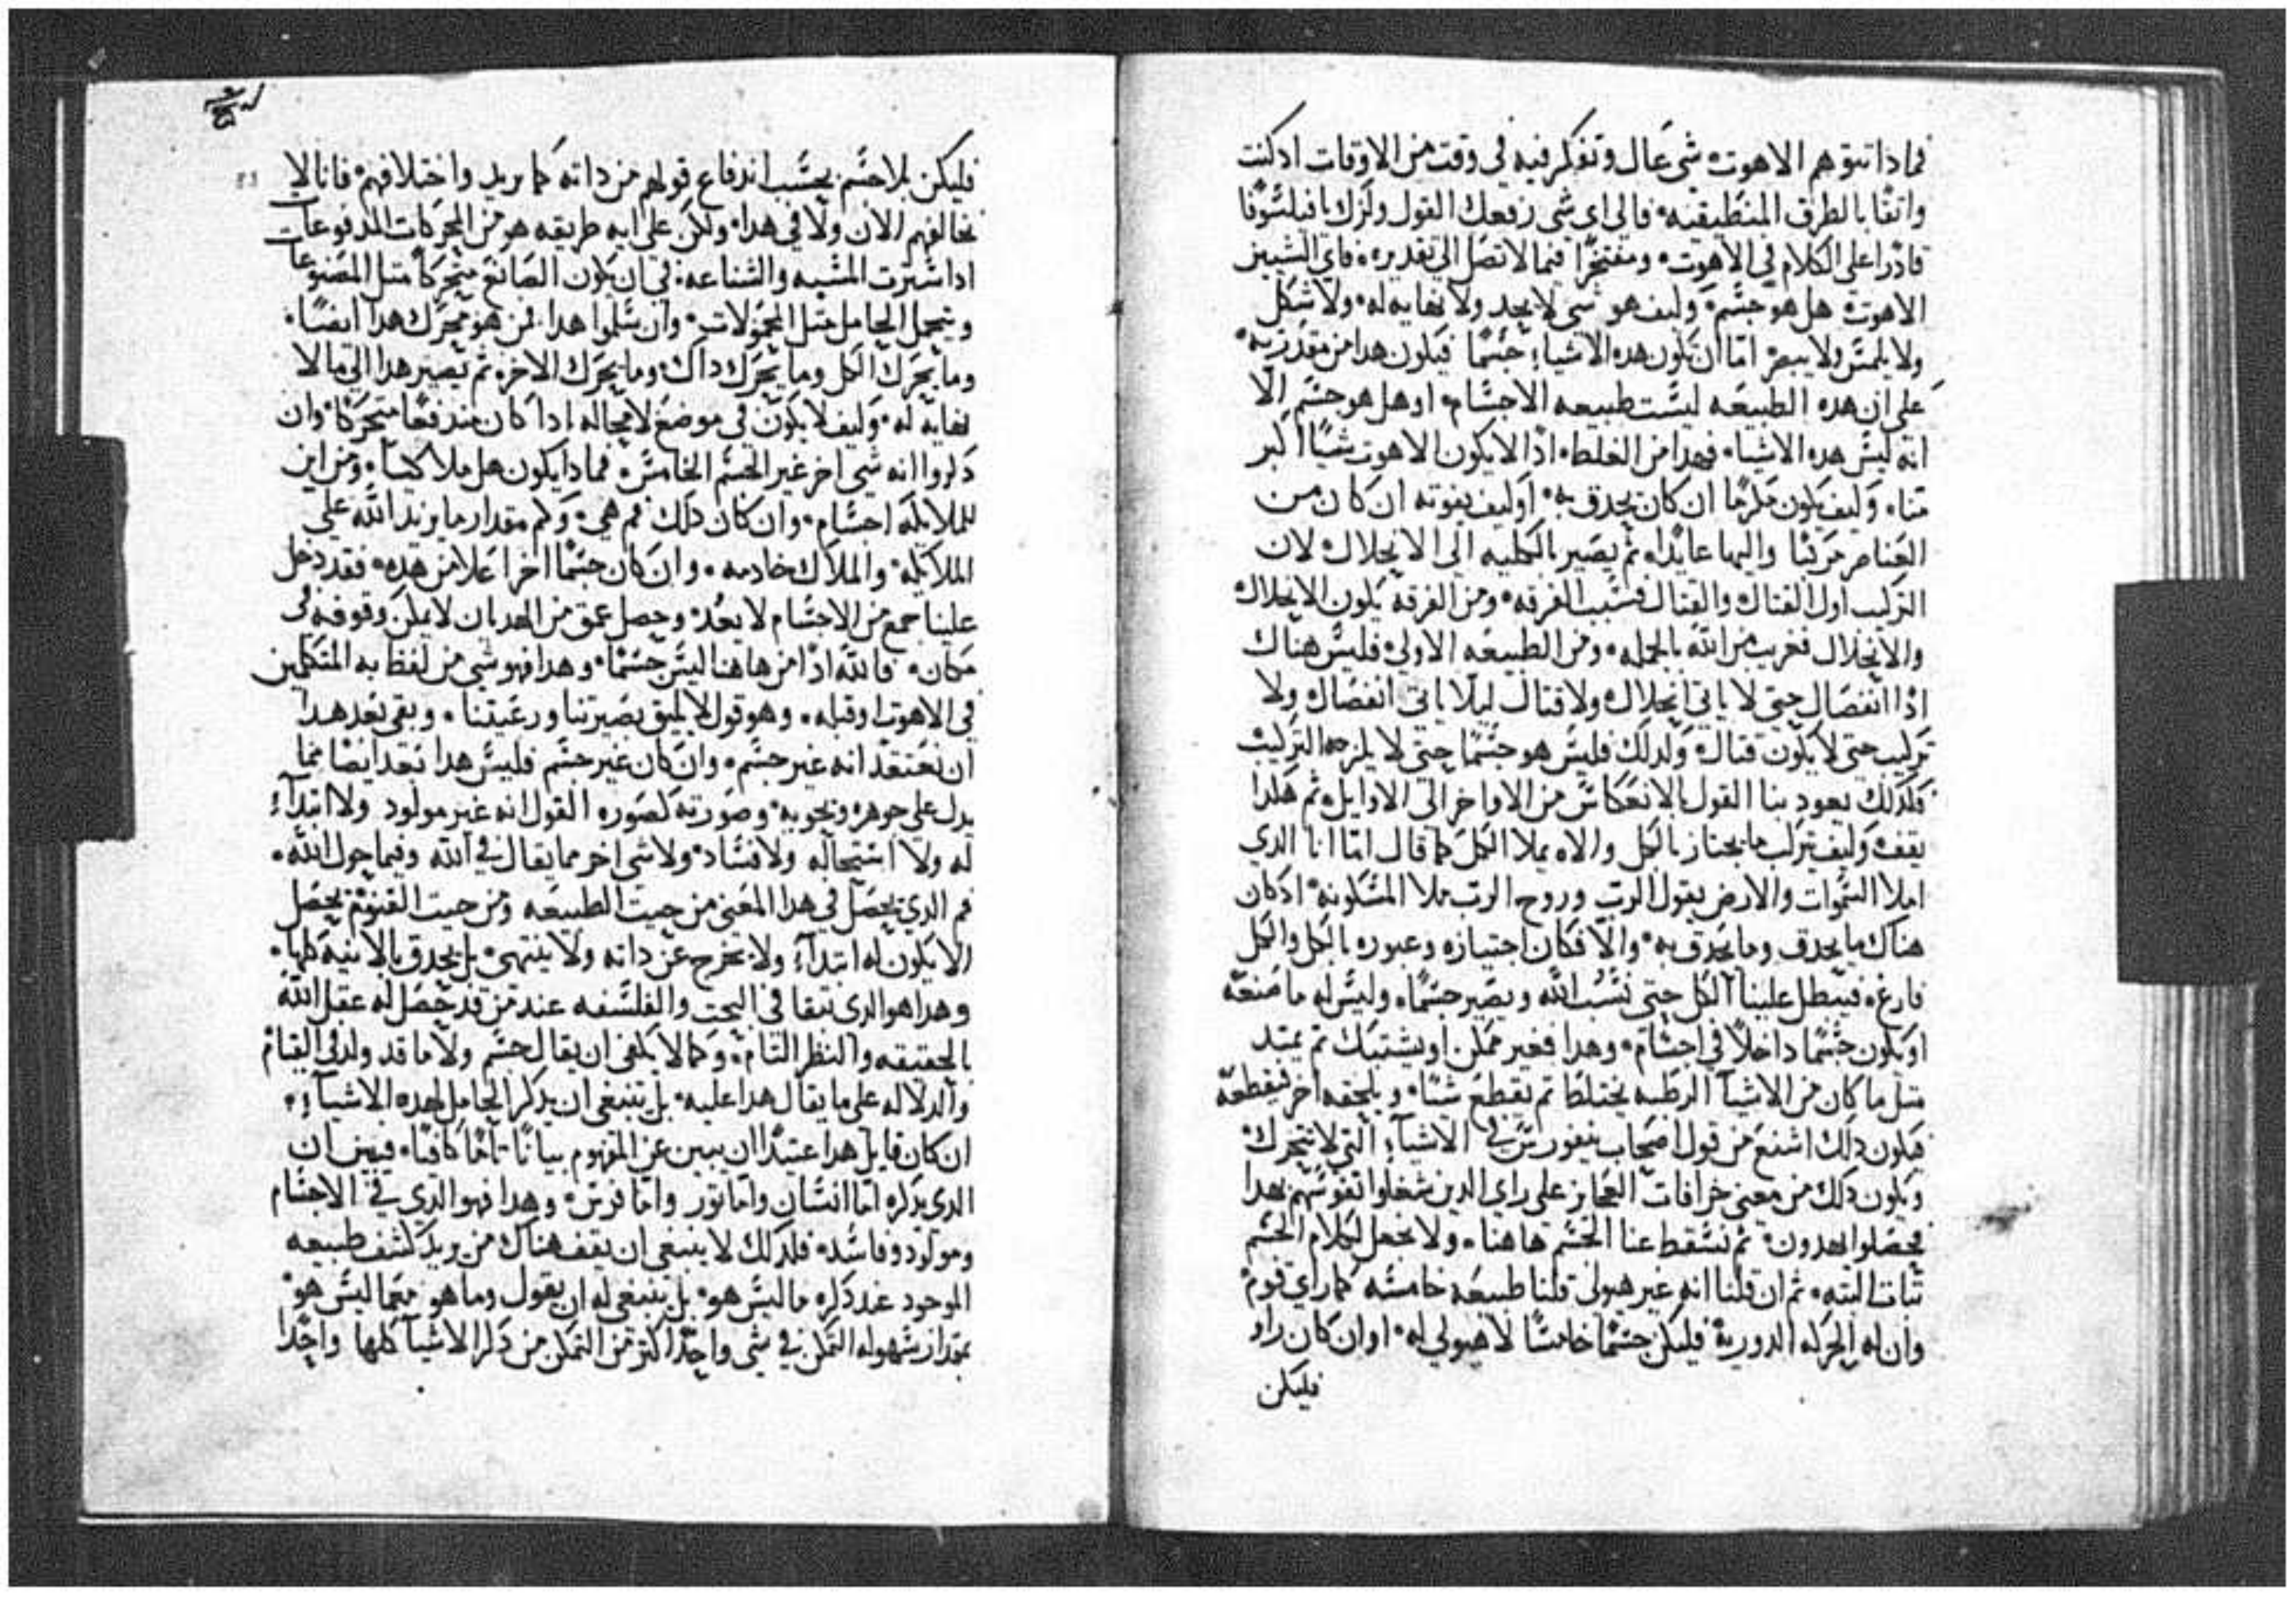 فماذا تتوهم الاهوت شي عال وتفكر فيه في وقت من الاوقات اد كنت
واثقا بالطرق المنطيقيه فالي اي شي رفعك القول ولزك يا فيلسوفا
قادرا على الكلام في الاهوت ومفتخرا فيما لا تصل الي تقديره فاي الشيين
الاهوت هل هو جسم وليف هو شي لا يحد ولا نهايه له ولا شكل
ولا يلمس ولا يبصر اما ان تكون هده الاشياء جسما فيكون هدا من مقدرته
على ان هده الطبيعه ليست طبيعه الاجسام او هل هو جسم الا
انه ليس هده الاشياء فهدا من الغلط ادا لا يكون الاهوت شيا اكبر
منا وليف يكون مكرما ان كان يحدق به او ليف يفوته ان كان من
العناصر مركبا واليها عايدا ثم يصير بالكليه الي الانحلال لان
التركيب اول القتال والقتال فسبب الفرقه ومن الفرقه يكون الانحلال
والانحلال فغريب من الله بالجمله ومن الطبيعه الاولي فليس هناك
ادا انفصال حتى لا ياتي انحلال ولا قتال ليلا ياتي انفصال ولا
تركيب حتى لا يكون قتال ولدلك فليس هو جسما حتى لا يلزمه التركيب
فكدلك يعود بنا القول بالانعكاس من الاواخر الى الاوايل ثم هكدا
يقف وليف تركب ما يجتاز بالكل والاه يملا الكل كما قال اما انا الدي
املا السموات والارض يقول الرب وروح الرب ملا المسكونه اد كان
هناك ما يحدق وما يحدق به والا فكان اجتيازه وعبوره بالكل والكل
فارغ فيبطل علينا الكل حتى نسب الله ويصير جسما وليس له ما صنعه
او يكون جسما داخلا في اجسام وهدا فغير ممكن او يشتبك ثم يمتد
مثل ما كان من الاشيا الرطبه يختلط ثم يقطع شيا ويلحقه اخر فيقطعه
فيكون دلك اشنع من قول اصحاب في الاشياء التي لا تتحرك
ويكون دلك من معنى خرافات العجايز على راي الدين شغلوا نفوسهم بهدا
فحصلوا يهدون ثم نسقط عنا الجسم هاهنا ولا نجعل لكلام الجسم
ثباتا البته ثم ان قلنا انه غير هيولى قلنا طبيعه خامسه كما راي قوم
وان له الحركه الدوريه فليكن جسما خامسا لا هيولي له او ان كان راو
فليكن
فليكن بلا جسم بحسب اندفاع قولهم من داته كما يريد واختلافهم فانا لا
نخالفهم الان ولا في هدا ولكن على ايه طريقه هو من المحركات المدفوعات
ادا شترت المسبه والشناعه في ان يكون الصانع متحركا مثل المصنوعات
ويتحمل الحامل مثل المحمولات وان سلموا هدا فمن هو محرك هدا ايضا
وما يحرك الكل وما يحرك داك وما يحرك الاخر ثم يصير هدا الي ما لا
نهايه له وليف لا يكون في موضع لا محاله ادا كان مندفعا متحركا وان
دكروا انه شي اخر غير الجسم الخامس فمادا يكون هل ملاكيا ومن اين
للملايكه اجسام وان كان دلك فمم هي وكم مقدار ما يزيد الله علي
الملايكه والملاك خادمه وان كان جسما اخر اعلا من هده فقد دخل
علينا جمع من الاجسام لا يعد وحصل عمق من الهديان لا يمكن وقوفه في
مكان فالله ادا من هاهنا ليس جسما وهدا فهو شي من لفظ به المتكلمين
في الاهوت او قبله وهو قول لا يليق بصيرتنا ورعيتنا وبقى بعد هدا
ان نعتقد انه غير جسم وان كان غير جسم فليس هدا بعد ايضا مما
يدل على جوهره ونحويه وصورته كصوره القول انه غير مولود ولا ابتداء
له ولا استحاله ولا فساد ولا شي اخر مما يقال في الله وفيما حول الله
فم الدي يحصل في هدا المعنى من حيت الطبيعه ومن حيت القنومه يحصل
الا يكون له ابتداء ولا يخرج عن داته ولا ينتهى بل يحدق بالانيه كلها
وهدا هو الدي تبقا في البحت والفلسفه عند من قد حصل له عقل الله
بالحقيقه والنظر التام وكما لا يكفى ان يقال جسم ولا ما قد ولد في القيام
والدلاله على ما يقال هدا عليه بل ينبغي ان يدكر الحامل لهده الاشياء
ان كان قايل هدا عتيدا ان يبين عن المفهوم بيانا تاما كافيا فيبين ان
الدي يدكره اما انسان واما تور واما فرس وهدا فهو الدي في الاجسام
ومولود وفاسد فلدلك لا ينبغى ان يقف هناك من يريد كشف طبيعه
الموجود عند دكره ما ليس هو بل ينبغي له ان يقول وما هو مع ما ليس هو
بمقدار سهوله التمكن في شي واحد اكتر من التمكن من دكر الاشيا كلها واحدا